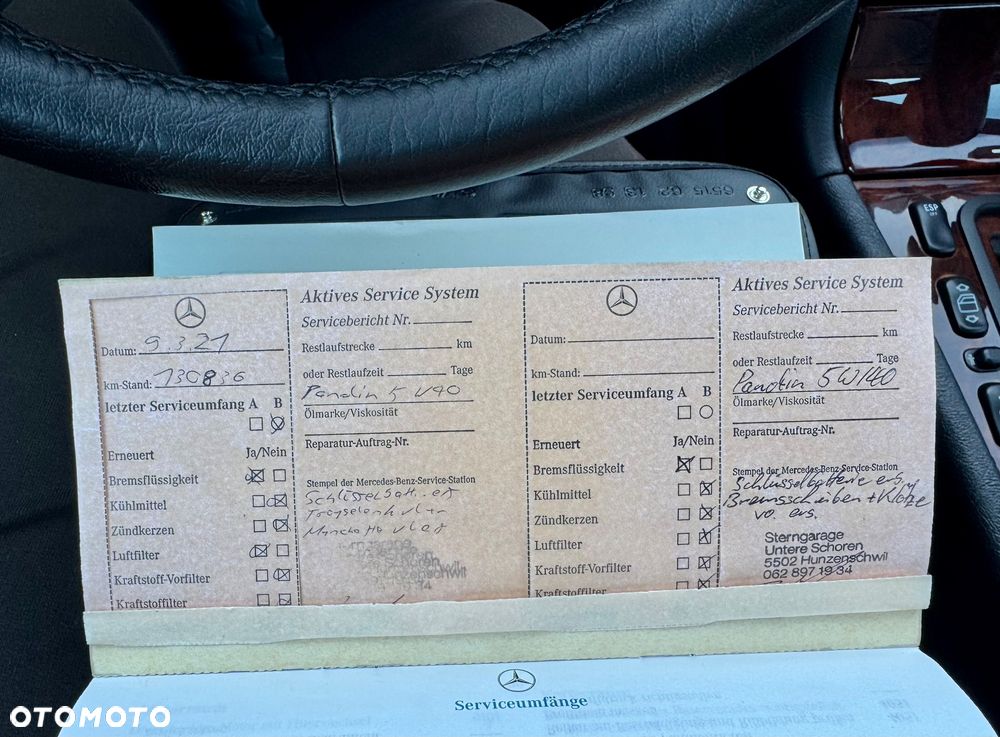 ESP
OFF
Datum: 9.3.21
km-Stand: 130836
letzter Serviceumfang A B
Erneuert Ja/Nein
Bremsflüssigkeit
Kühlmittel
Zündkerzen
Luftfilter
Kraftstoff-Vorfilter
Kraftstoffilter
Aktives Service System
Servicebericht Nr.
Restlaufstrecke km
oder Restlaufzeit Tage
Ölmarke/Viskosität
Reparatur-Auftrag-Nr.
Stempel der Mercedes-Benz-Service-Station
Datum:
km-Stand:
letzter Serviceumfang A B
Erneuert Ja/Nein
Bremsflüssigkeit
Kühlmittel
Zündkerzen
Luftfilter
Kraftstoff-Vorfilter
Kraftstoffilter
Aktives Service System
Servicebericht Nr.
Restlaufstrecke km
oder Restlaufzeit Tage
5W40
Ölmarke/Viskosität
Reparatur-Auftrag-Nr.
Stempel der Mercedes-Benz-Service-Station
Schlüsselbatterie ers.
Bremsscheiben + Klötze
vo. ers.
Sterngarage
Untere Schoren
5502 Hunzenschwil
062 897 19 34
Serviceumfänge
OTOMOTO